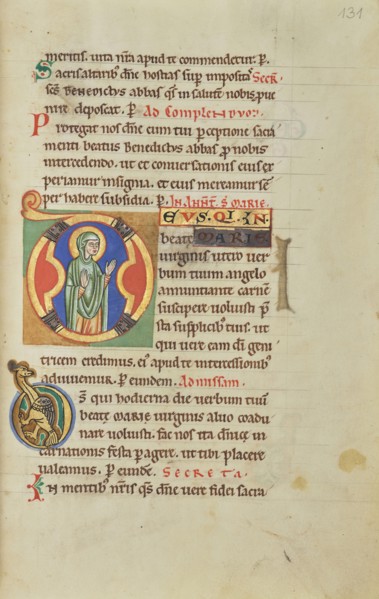 131
meritis. vita nr̄a apud te commendetur. P.
Sacris altarib; dn̄e hostias sup impositas Secr̄.
sc̄s BENEDICTVS abbas qs̄ in salutē nobis pue
nire deposcat. P. Ad Complendvm.
Protegat nos dn̄e cum tui pceptione sacra
menti beatus Benedictus abbas p nobis
intercedendo. ut et conversationis eius ex
periamur insignia. et eius mereamur sē
per habere subsidia. P. IN ANNT. S MARIE.
DEVS. QI. IN
beatę MARIE
virginis utero ver
bum tuum angelo
annuntiante carnē
suscipere voluisti. p̄
sta supplicib; tuis. ut
qui vere eam dī geni
tricem credimus. ei apud te intercessionib;
adiuvemur. P eundem. Ad missam.
Ds̄ qui hodierna die verbum tuum
beatę MARIE virginis alvo coadu
nare voluisti. fac nos ita dn̄ice in
carnationis festa p agere. ut tibi placere
valeamus. P eundē. SECRETA.
In mentib; nr̄is qs̄ dn̄e vere fidei sacra